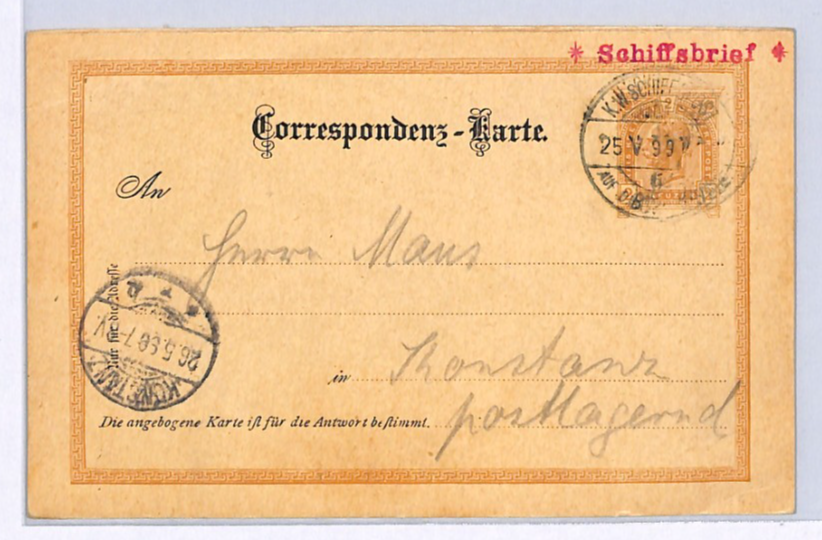 * Schiffsbrief *
Correspondenz-Karte.
25 V 99
An
Herrn Maus
Nur für die Adresse
26.5.99.7-8V.
KONSTANZ
in Konstanz
Die angebogene Karte ist für die Antwort bestimmt.
postlagernd